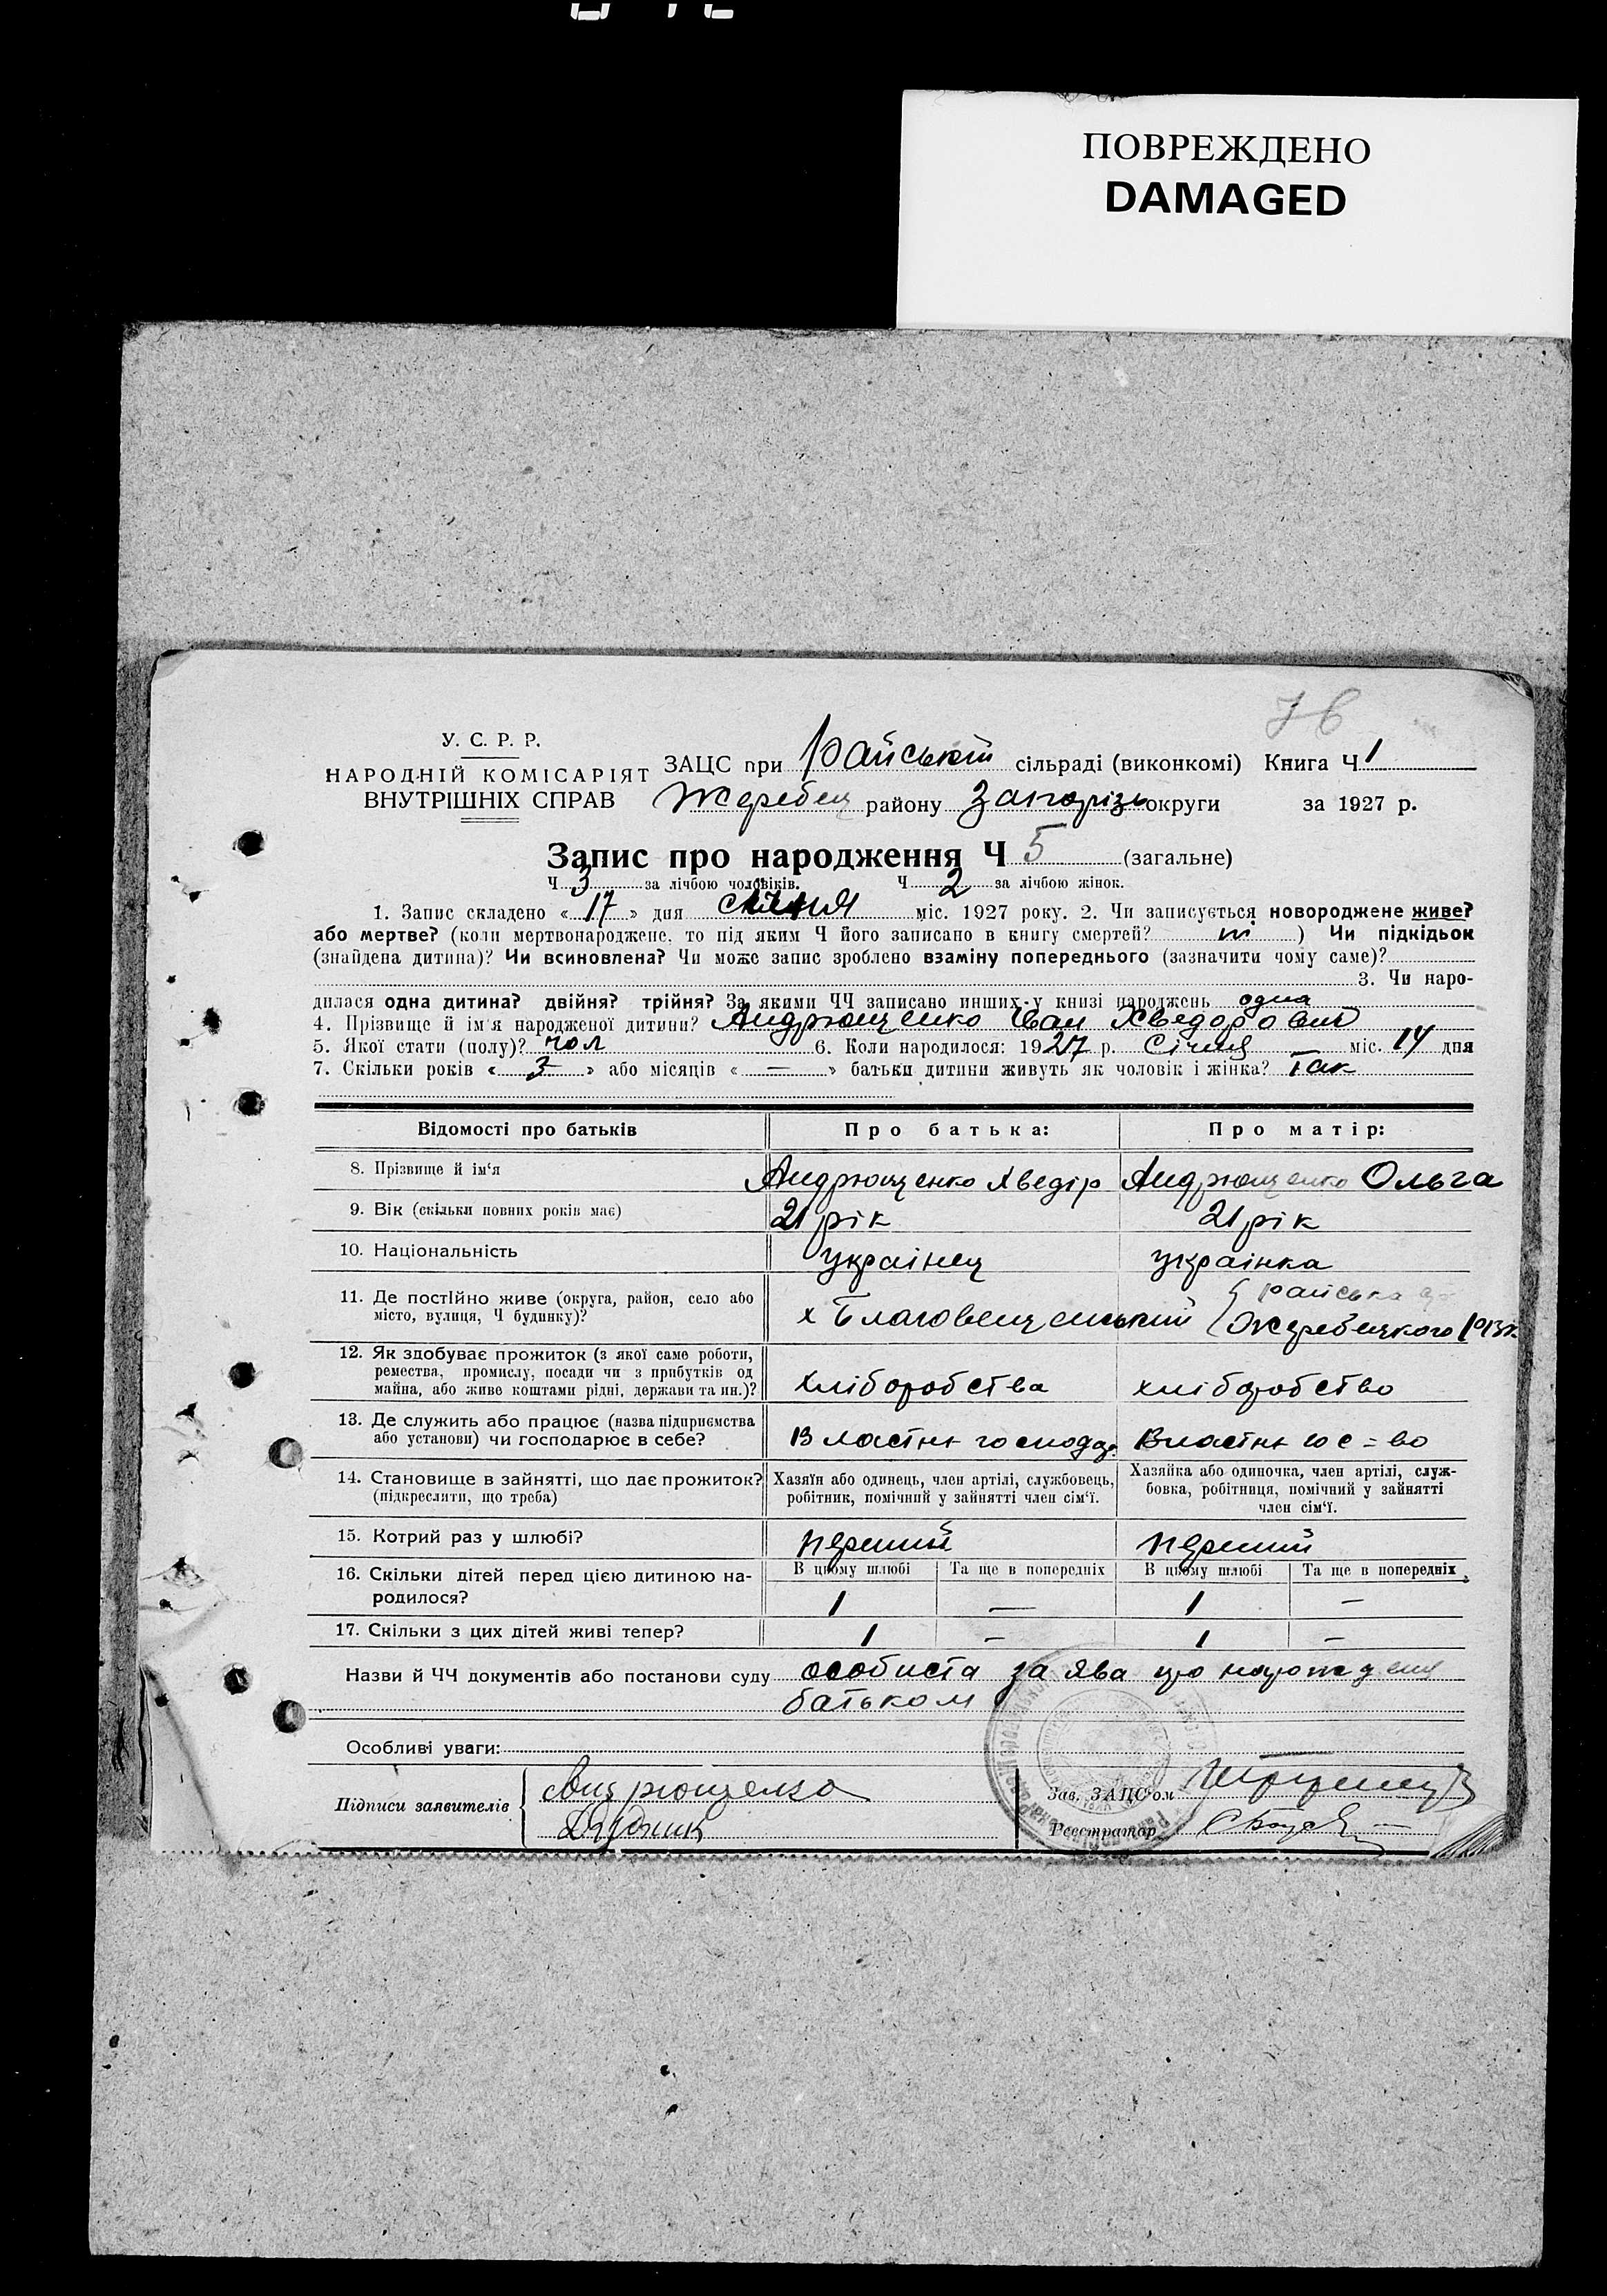 ПОВРЕЖДЕНО
DAMAGED
76
У. С. Р. Р.
НАРОДНІЙ КОМІСАРІЯТ
ВНУТРІШНІХ СПРАВ
ЗАЦС при Райській сільраді (виконкомі) Книга Ч 1
Жеребец району Запорізь округи за 1927 р.
Запис про народження Ч 5 (загальне)
Ч 3 за лічбою чоловіків. Ч 2 за лічбою жінок.
1. Запис складено « 17 » дня січня міс. 1927 року. 2. Чи записується новороджене живе?
або мертве? (коли мертвонароджене, то під яким Ч його записано в книгу смертей? ні ) Чи підкідьок
(знайдена дитина)? Чи всиновлена? Чи може запис зроблено взаміну попереднього (зазначити чому саме)?
3. Чи наро-
дилася одна дитина? двійня? трійня? За якими ЧЧ записано инших у книзі народжень одна
4. Прізвище й ім'я народженої дитини? Андрющенко Іван Хведорович
5. Якої стати (полу)? чол 6. Коли народилося: 1927 р. Січня міс. 14 дня
7. Скільки років « 3 » або місяців « — » батьки дитини живуть як чоловік і жінка? Так
Відомості про батьків Про батька: Про матір:
8. Прізвище й ім'я Андрющенко Хведір Андрющенко Ольга
9. Вік (скільки повних років має) 21 рік 21 рік
10. Національність українец українка
11. Де постійно живе (округа, район, село або
місто, вулиця, Ч будинку)? х Благовещенський { райська
Жеребецкого
12. Як здобуває прожиток (з якої саме роботи,
ремества, промислу, посади чи з прибутків од
майна, або живе коштами рідні, держави та ин.)? хліборобства хліборобство
13. Де служить або працює (назва підприємства
або установи) чи господарює в себе? Властне господар. Властне гос=во
14. Становище в зайнятті, що дає прожиток?
(підкреслити, що треба)
Хазяїн або одинець, член артілі, службовець,
робітник, помічний у зайнятті член сім'ї.
Хазяйка або одиночка, член артілі, служ-
бовка, робітниця, помічний у зайнятті
член сім'ї.
15. Котрий раз у шлюбі? перший перший
16. Скільки дітей перед цією дитиною на-
родилося?
В цьому шлюбі Та ще в попередніх В цьому шлюбі Та ще в попередніх
1 — 1 —
17. Скільки з цих дітей живі тепер? 1 — 1 —
Назви й ЧЧ документів або постанови суду особиста заява про народженя
батьком
Особливі уваги:
Підписи заявителів { Андрющенко
Дудник
Зав. ЗАЦС'ом
Реєстратор